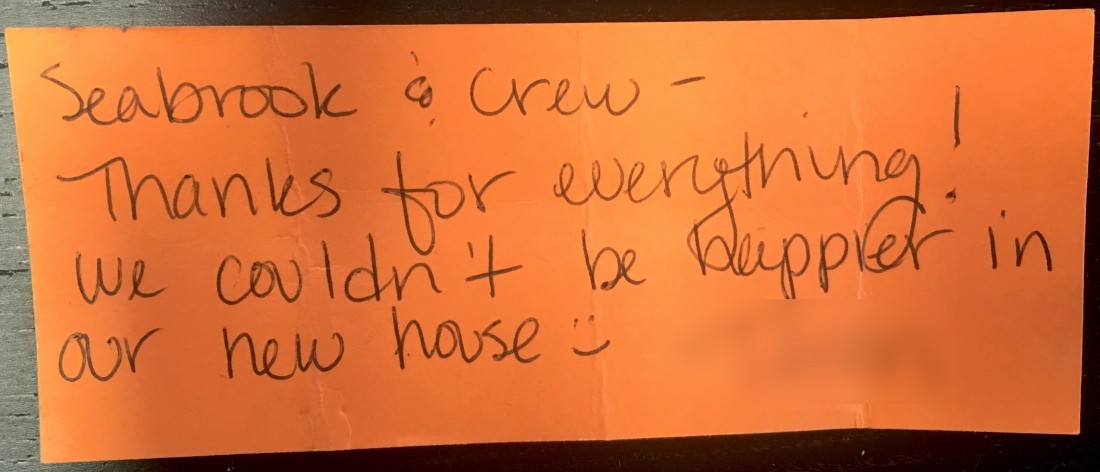 Seabrook & Crew -
Thanks for everything!
We couldn't be happier in
our new house :)